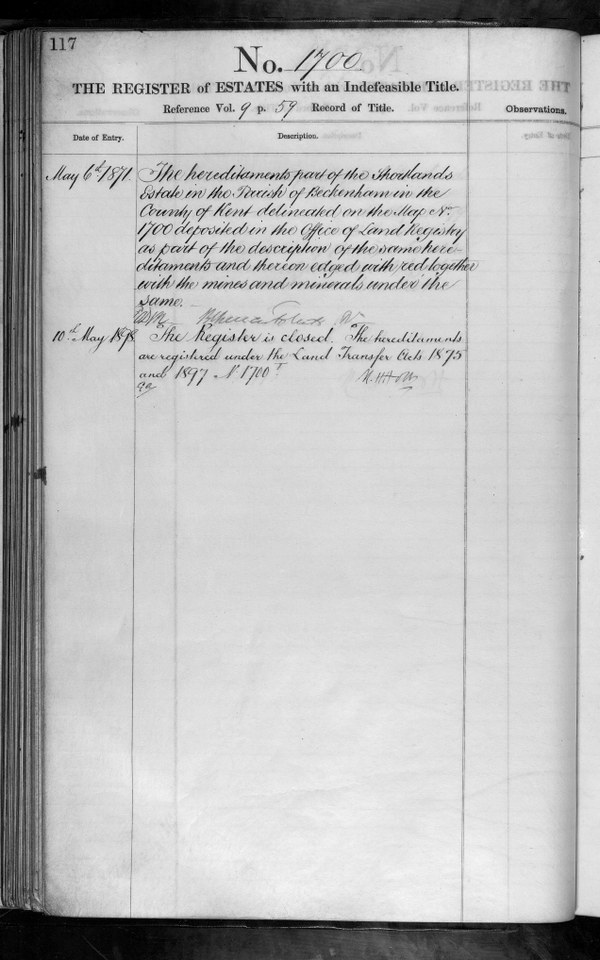 117
No. 1700
THE REGISTER of ESTATES with an Indefeasible Title.
Reference Vol. 9 p. 59 Record of Title.
Observations.
Date of Entry.
Description.
May 6th 1871.
The hereditaments part of the Shortlands
Estate in the Parish of Beckenham in the
County of Kent delineated on the Map No.
1700 deposited in the Office of Land Registry
as part of the description of the same here-
ditaments and thereon edged with red together
with the mines and minerals under the
same.
10th May 1898.
The Register is closed. The hereditaments
are registered under the Land Transfer Acts 1875
and 1897 No 1700